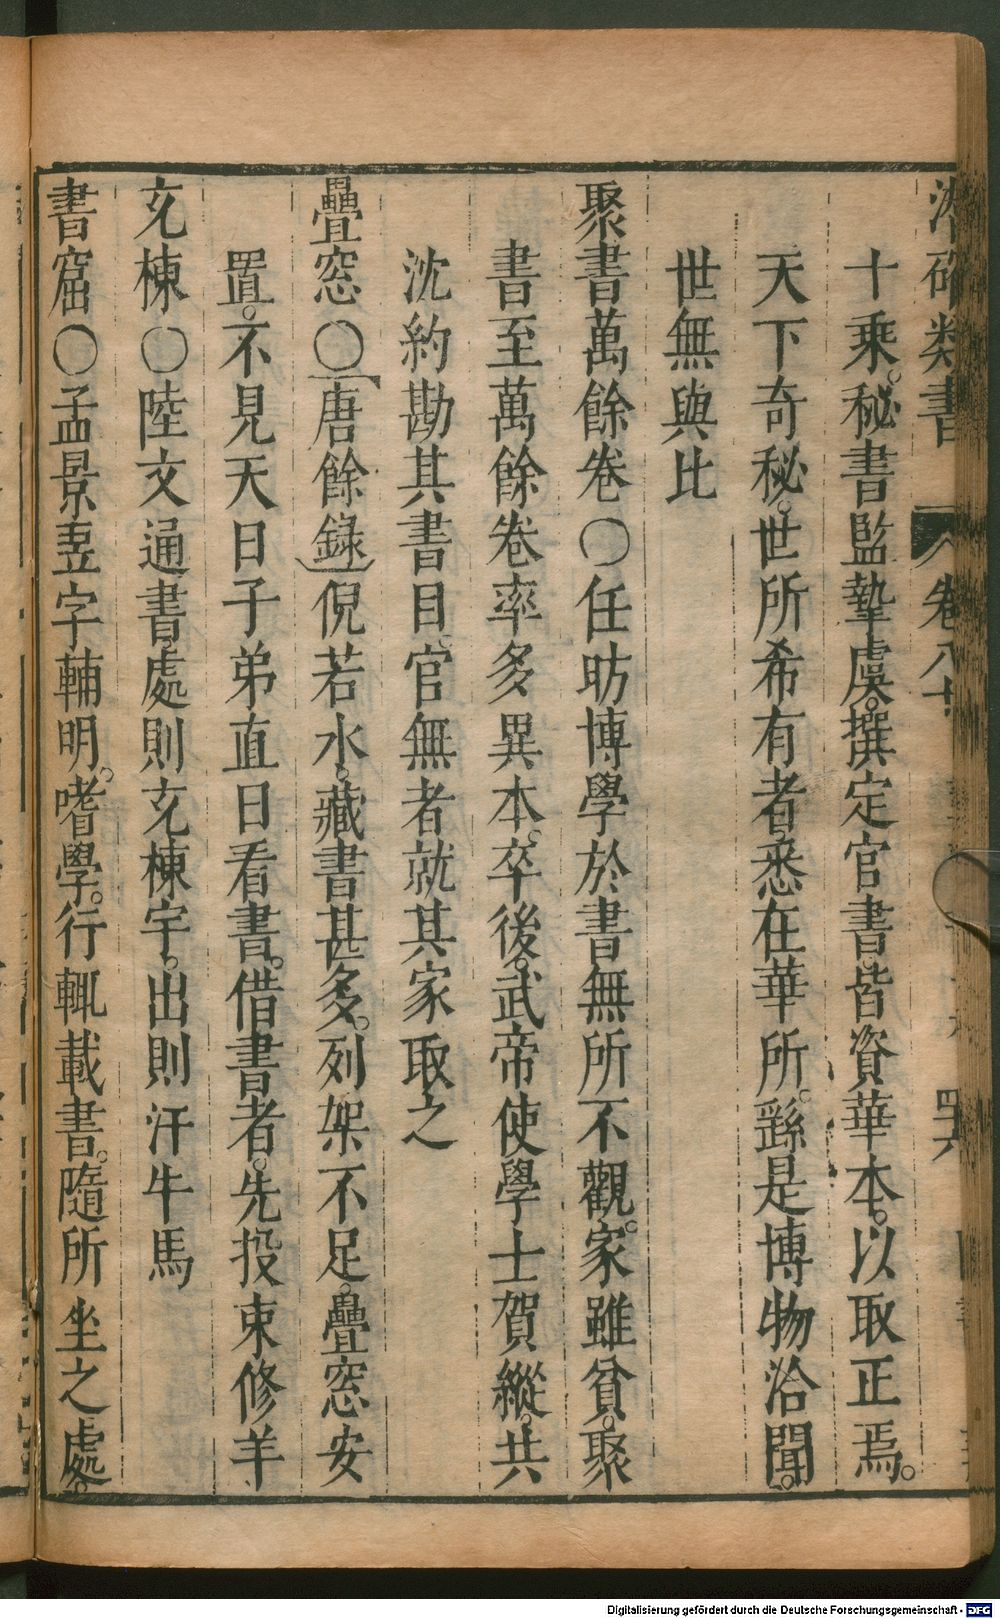 潛確類書 卷八十 四六
十乘。秘書監摯虞。撰定官書。皆資華本。以取正焉。
天下奇秘。世所希有者。悉在華所。繇是博物洽聞。
世無與比
聚書萬餘卷〇任昉博學於書無所不觀。家雖貧。聚
書至萬餘卷率多異本。卒後。武帝使學士賀縱。共
沈約勘其書目。官無者就其家取之
疊窓〇唐餘錄倪若水。藏書甚多。列架不足。疊窓安
置。不見天日子弟直日看書。借書者。先投束修羊
充棟〇陸文通書。處則充棟宇。出則汗牛馬
書窟〇孟景翌字輔明。嗜學。行輒載書。隨所坐之處。
Digitalisierung gefördert durch die Deutsche Forschungsgemeinschaft - DFG